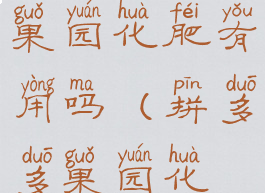 guǒ yuán huà féi yǒu
果园化肥有
yòng ma pīn duō
用吗（拼多
duō guǒ yuán huà
多果园化